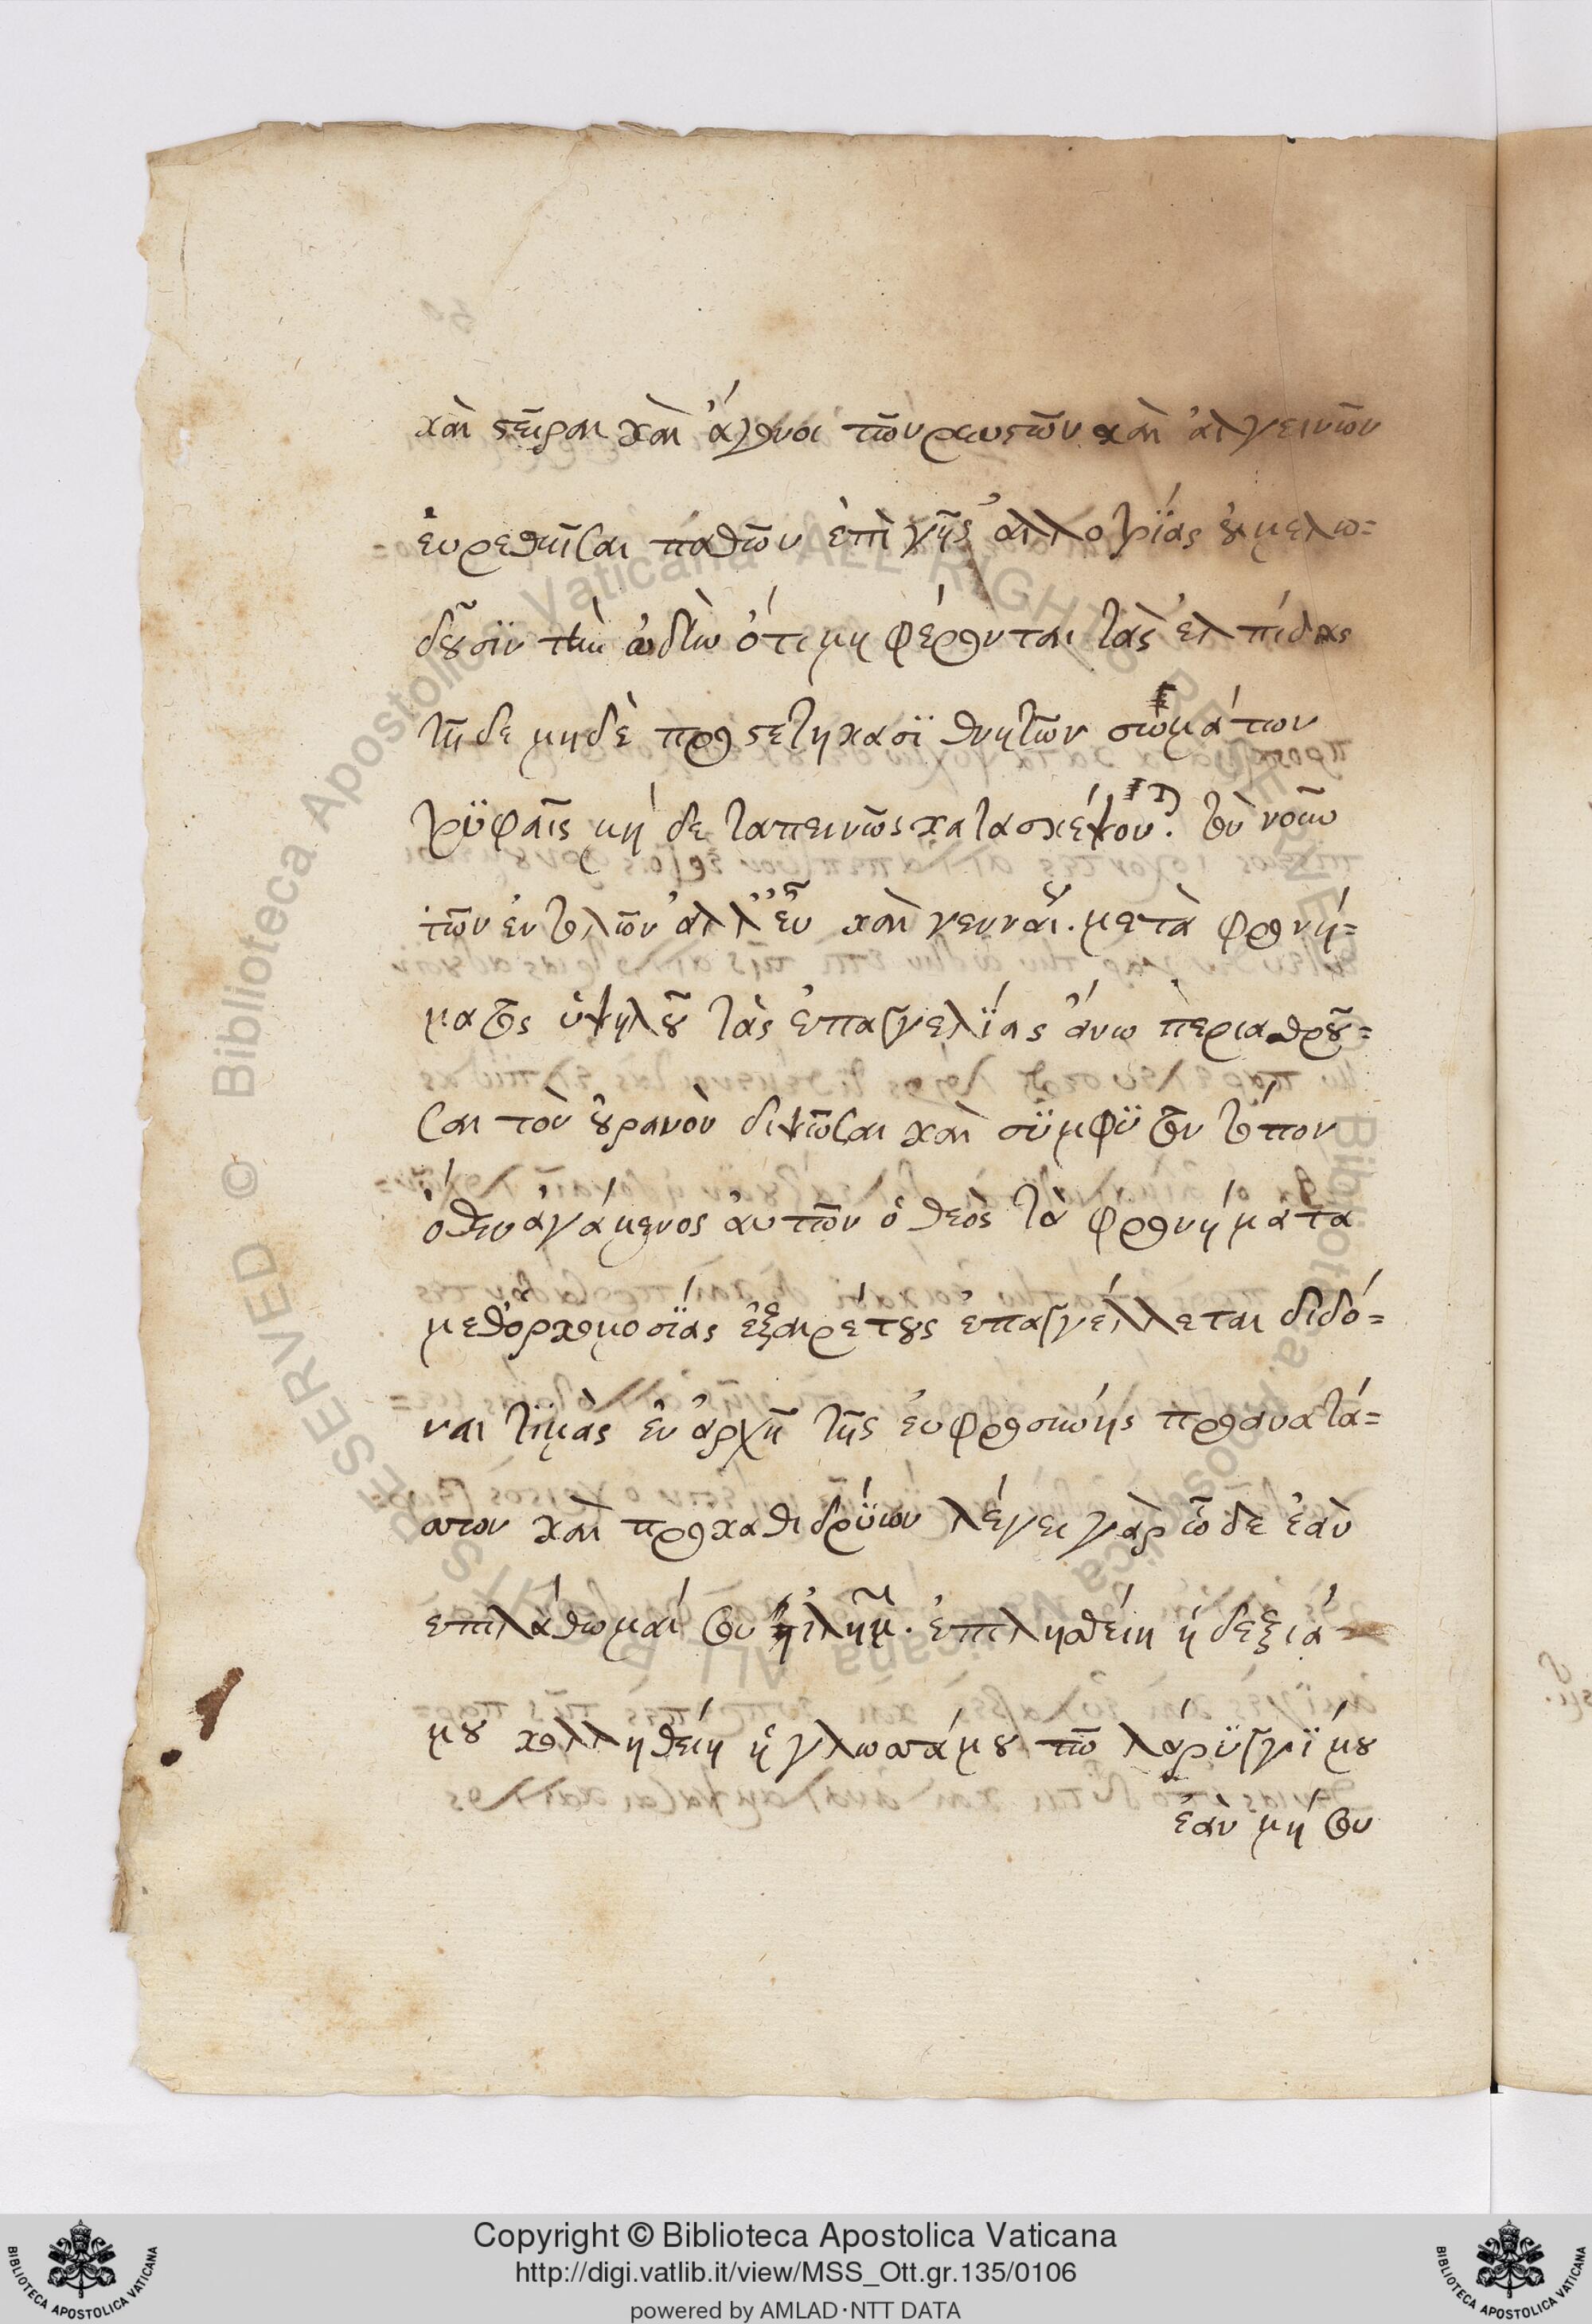 καὶ στεῖραι καὶ ἄγονοι τῶν ρευστῶν καὶ ἀλγεινῶν
εὑρεθεῖσαι παθῶν ἐπὶ γῆς ἀλλοτρίας οὐ μελω=
δοῦσιν τὴν ὠδὴν ὅτι μη φέρονται τὰς ἐλπίδας
τῇδε μηδὲ προστετήκασϊ θνητῶν σωμάτων
τρϋφαῖς μή δε ταπεινῶς κατασκέψον. τὸν νοῦν
τῶν ἐντολῶν ἀλλ' εὖ καὶ γενναί. μετὰ φρονή=
ματος ὑψηλοῦ τὰς ἐπαγγελΐας ἄνω περιαθροῦ=
σαι τὸν οὐρανὸν διψῶσαι καὶ σϋμφϋτον τόπον
ὅθεν ἀγάμενος αὐτῶν ὁ θεὸς τὰ φρονήματα
μεθ' ὁρκομοσΐας ἐξαιρέτους ἐπαγγέλλεται διδό=
ναι τϊμὰς ἐν ἀρχῇ τῆς εὐφροσύνης προανατά=
σσων καὶ προκαθιδρΰων λέγει γὰρ ὧδε ἐὰν
επιλάθωμαί σου ϊλημ. ἐπιλησθείη ἡ δεξιά
μου κολληθείη ἡ γλωσσά μου τῶ λάρϋγγϊ μου
ἐὰν μή σου
Copyright © Biblioteca Apostolica Vaticana
http://digi.vatlib.it/view/MSS_Ott.gr.135/0106
powered by AMLAD·NTT DATA
© Biblioteca Apostolica Vaticana ALL RIGHTS RESERVED
© Biblioteca Apostolica Vaticana ALL RIGHTS RESERVED
BIBLIOTECA APOSTOLICA VATICANA
BIBLIOTECA APOSTOLICA VATICANA